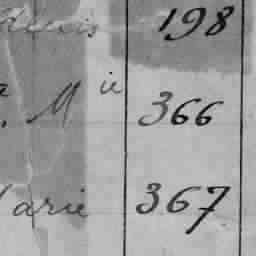 198
M ie 366
arie 367